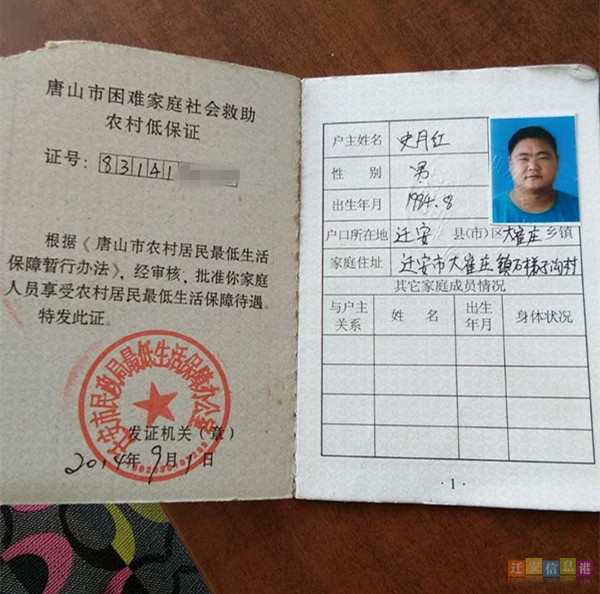 唐山市困难家庭社会救助
农村低保证
证号：83141
根据《唐山市农村居民最低生活
保障暂行办法》，经审核，批准你家庭
人员享受农村居民最低生活保障待遇。
特发此证。
迁安市民政局最低生活保障办公室
发证机关（章）
2014年9月1日
户主姓名 史月红
性别 男
出生年月 1984.8
户口所在地 迁安 县(市)区 大崔庄 乡镇
家庭住址 迁安市大崔庄镇石梯子沟村
其它家庭成员情况
与户主关系 姓名 出生年月 身体状况
·1·
迁安信息港